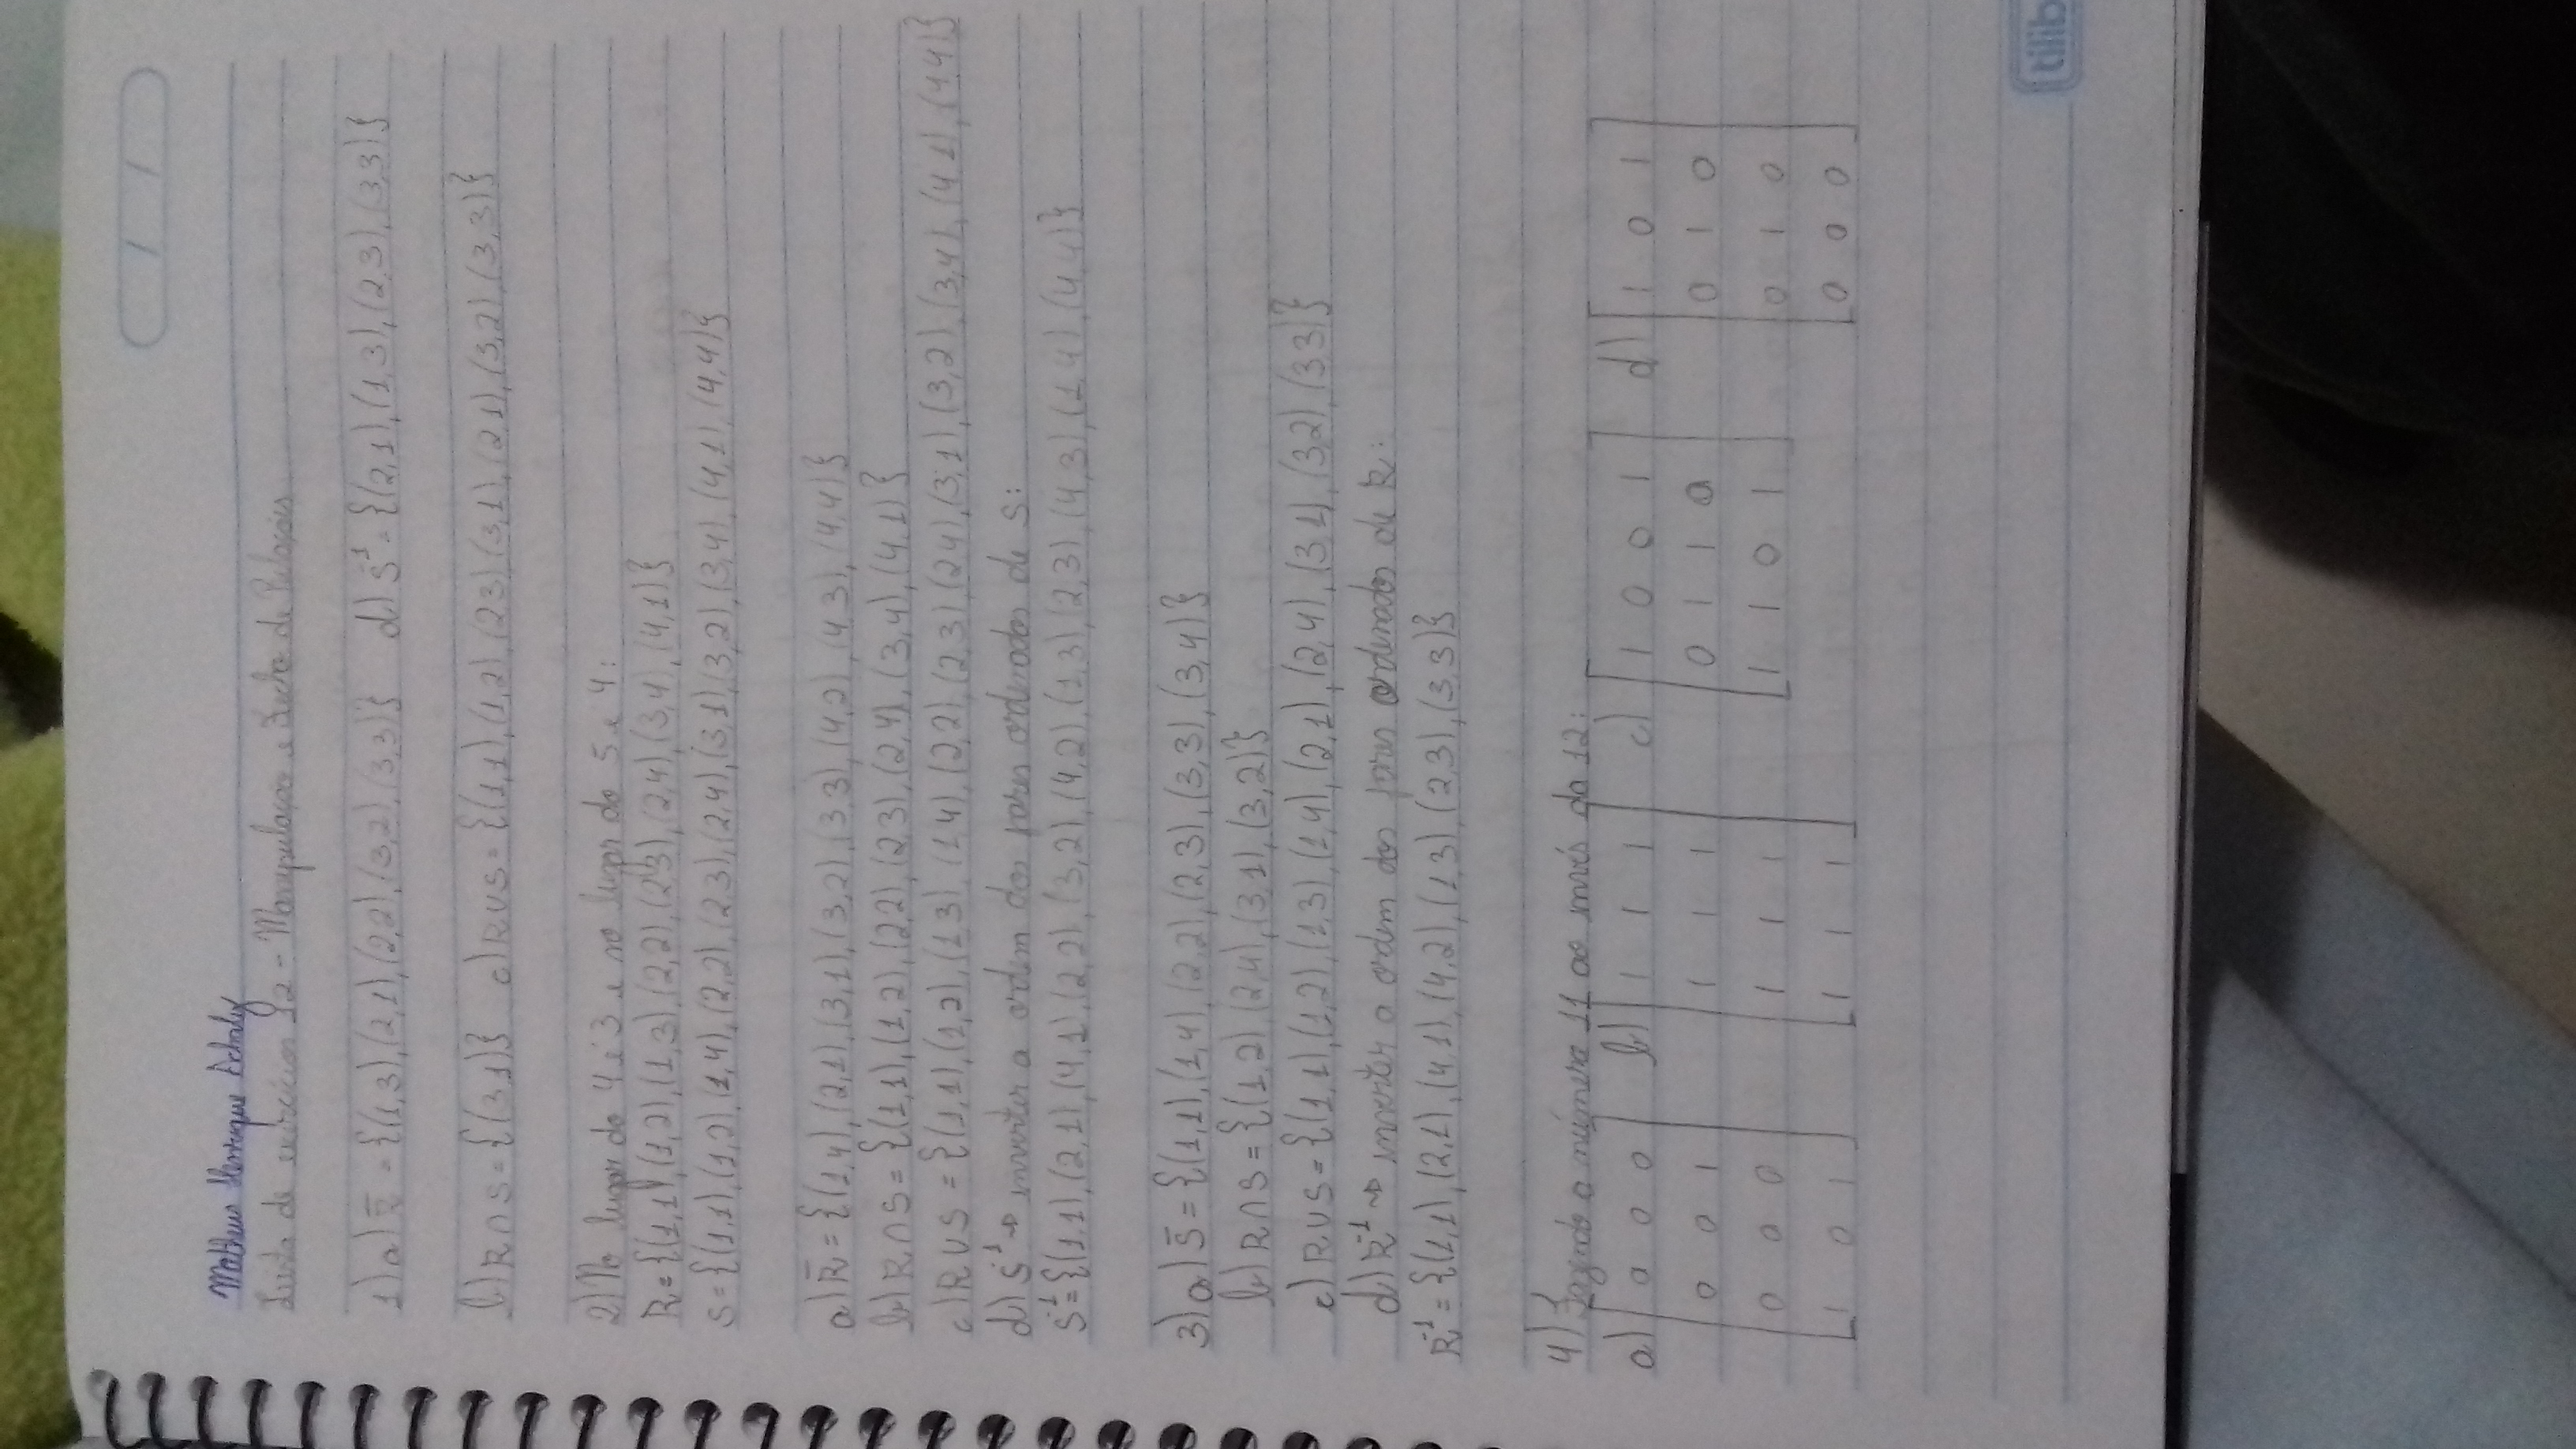 Matheus Henrique Schaly
Lista de exercícios 12 - Manipulação e Fecho de Relações
1) a) R̅ = {(1,3),(2,1),(2,2),(3,2),(3,3)} d) S⁻¹ = {(2,1),(1,3),(2,3),(3,3)}
b) R∩S = {(3,1)} c) R∪S = {(1,1),(1,2),(2,3),(3,1),(2,1),(3,2),(3,3)}
2) No lugar do 4 é 3 e no lugar do 5 é 4:
R = {(1,1),(1,2),(1,3),(2,2),(2,3),(2,4),(3,4),(4,1)}
S = {(1,1),(1,2),(1,4),(2,2),(2,3),(2,4),(3,1),(3,2),(3,4),(4,1),(4,4)}
a) R̅ = {(1,4),(2,1),(3,1),(3,2),(3,3),(4,2),(4,3),(4,4)}
b) R∩S = {(1,1),(1,2),(2,2),(2,3),(2,4),(3,4),(4,1)}
c) R∪S = {(1,1),(1,2),(1,3),(1,4),(2,2),(2,3),(2,4),(3,1),(3,2),(3,4),(4,1),(4,4)}
d) S⁻¹ → inverter a ordem dos pares ordenados de S:
S⁻¹ = {(1,1),(2,1),(4,1),(2,2),(3,2),(4,2),(1,3),(2,3),(4,3),(1,4),(4,4)}
3) a) S̅ = {(1,1),(1,4),(2,2),(2,3),(3,3),(3,4)}
b) R∩S = {(1,2),(2,4),(3,1),(3,2)}
c) R∪S = {(1,1),(1,2),(1,3),(1,4),(2,1),(2,4),(3,1),(3,2),(3,3)}
d) R⁻¹ → inverter a ordem dos pares ordenados de R:
R⁻¹ = {(1,1),(2,1),(4,1),(4,2),(1,3),(2,3),(3,3)}
4) Fazendo o número 11 ao invés da 12:
a) 0 0 0 b) 1 1 1 c) 1 0 0 1 d) 1 0 1
0 0 1 1 1 1 0 1 1 0 0 1 0
0 0 0 1 1 1 1 1 0 1 0 1 0
1 0 1 1 1 1 0 0 0
tilib